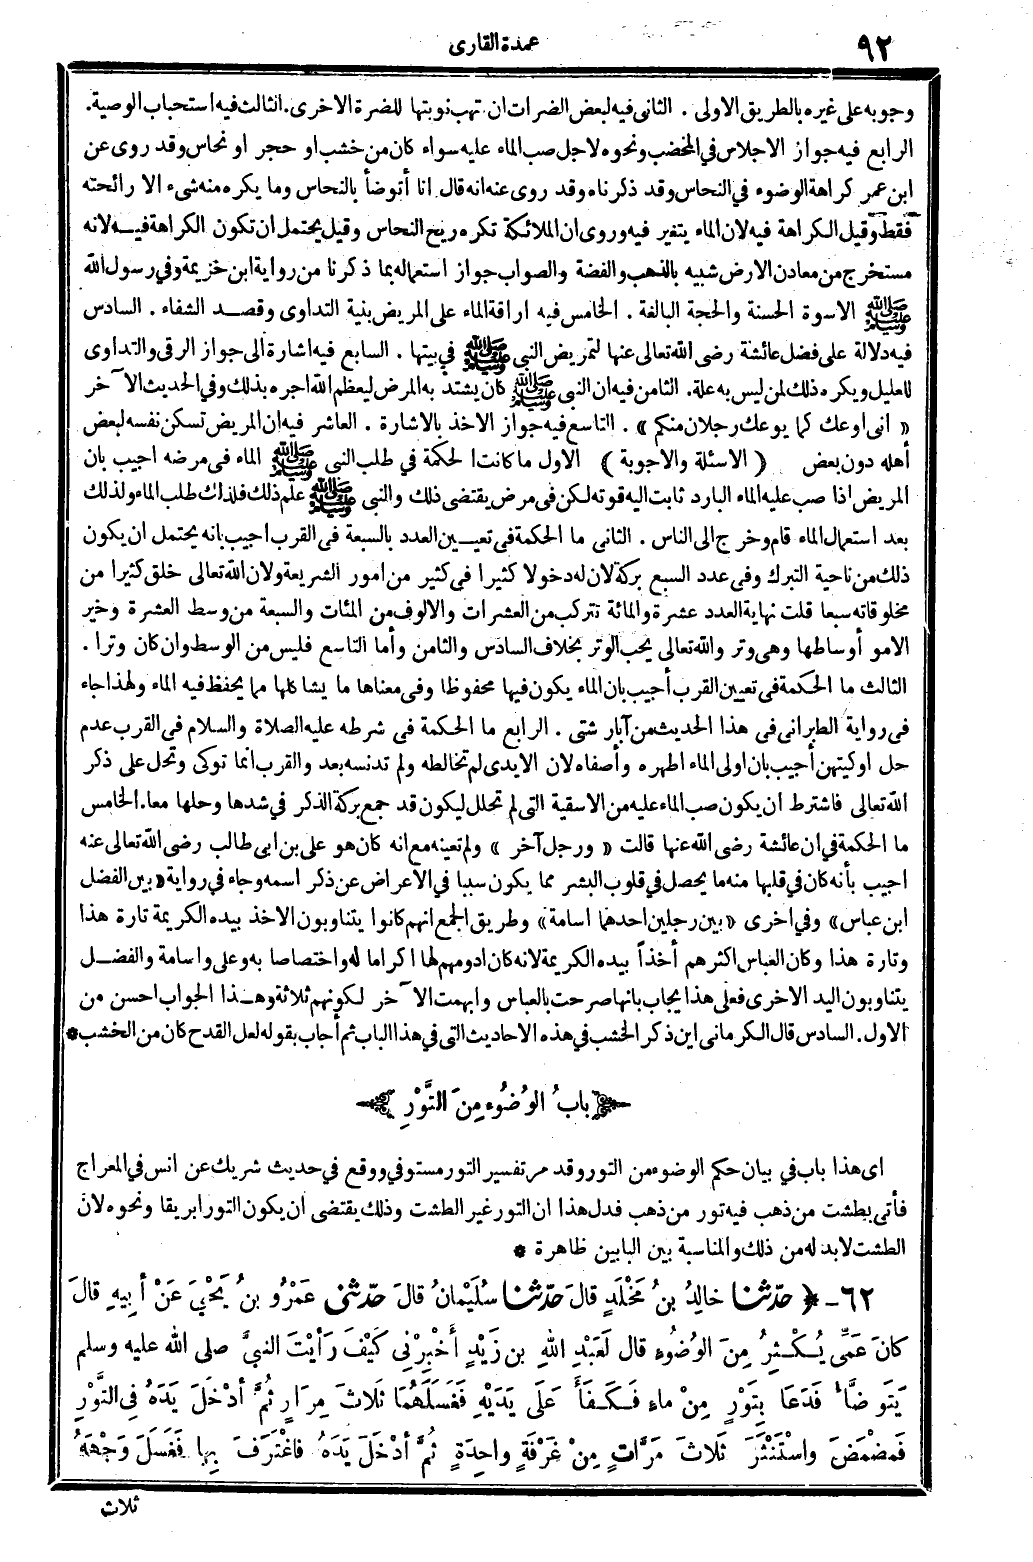 ٩٢
عمدة القارى
وجوبه على غيره بالطريق الاولى . الثانى فيه لبعض الضرات ان تهب نوبتها للضرة الاخرى . الثالث فيه استحباب الوصية .
الرابع فيه جواز الاجلاس في المخضب ونحوه لاجل صب الماء عليه سواء كان من خشب او حجر او نحاس وقد روى عن
ابن عمر كراهة الوضوء في النحاس وقد ذكرناه وقد روى عنه انه قال انا أتوضأ بالنحاس وما يكره منه شىء الا رائحته
فقط وقيل الكراهة فيه لان الماء يتغير فيه وروى ان الملائكة تكره ريح النحاس وقيل يحتمل ان تكون الكراهة فيه لانه
مستخرج من معادن الارض شبيه بالذهب والفضة والصواب جواز استعماله بما ذكرنا من رواية ابن خزيمة وفي رسول الله
ﷺ الاسوة الحسنة والحجة البالغة . الخامس فيه اراقة الماء على المريض بنية التداوى وقصد الشفاء . السادس
فيه دلالة على فضل عائشة رضى الله تعالى عنها لتمريض النبى ﷺ في بيتها . السابع فيه اشارة الى جواز الرقى والتداوى
للعليل ويكره ذلك لمن ليس به علة . الثامن فيه ان النبى ﷺ كان يشتد به المرض ليعظم الله اجره بذلك وفي الحديث الآخر
« انى اوعك كما يوعك رجلان منكم » . التاسع فيه جواز الاخذ بالاشارة . العاشر فيه ان المريض تسكن نفسه لبعض
أهله دون بعض ( الاسئلة والاجوبة ) الاول ما كانت الحكمة في طلب النبى ﷺ الماء فى مرضه اجيب بان
المريض اذا صب عليه الماء البارد ثابت اليه قوته لكن فى مرض يقتضى ذلك والنبى ﷺ علم ذلك فلذلك طلب الماء ولذلك
بعد استعمال الماء قام وخرج الى الناس . الثانى ما الحكمة فى تعيين العدد بالسبعة فى القرب اجيب بانه يحتمل ان يكون
ذلك من ناحية التبرك وفى عدد السبع بركة لان له دخولا كثيرا فى كثير من امور الشريعة ولان الله تعالى خلق كثيرا من
مخلوقاته سبعا قلت نهاية العدد عشرة والمائة تتركب من العشرات والالوف من المئات والسبعة من وسط العشرة وخير
الامو أوساطها وهى وتر والله تعالى يحب الوتر بخلاف السادس والثامن وأما التاسع فليس من الوسط وان كان وترا .
الثالث ما الحكمة فى تعيين القرب أجيب بان الماء يكون فيها محفوظا وفى معناها ما يشاكلها مما يحفظ فيه الماء ولهذا جاء
فى رواية الطبرانى فى هذا الحديث من آبار شتى . الرابع ما الحكمة فى شرطه عليه الصلاة والسلام فى القرب عدم
حل اوكيتهن أجيب بان اولى الماء اطهره وأصفاه لان الايدى لم تخالطه ولم تدنسه بعد والقرب انما توكى وتحل على ذكر
الله تعالى فاشترط ان يكون صب الماء عليه من الاسقية التى لم تحلل ليكون قد جمع بركة الذكر في شدها وحلها معا . الخامس
ما الحكمة في ان عائشة رضى الله عنها قالت « ورجل آخر » ولم تعينه مع انه كان هو على بن ابى طالب رضى الله تعالى عنه
اجيب بأنه كان في قلبها منه ما يحصل في قلوب البشر مما يكون سببا في الاعراض عن ذكر اسمه وجاء في رواية « بين الفضل
ابن عباس » وفي اخرى « بين رجلين احدهما اسامة » وطريق الجمع انهم كانوا يتناوبون الاخذ بيده الكريمة تارة هذا
وتارة هذا وكان العباس اكثرهم أخذاً بيده الكريمة لانه كان ادومهم لها اكراما له واختصاصا به وعلى واسامة والفضل
يتناوبون اليد الاخرى فعلى هذا يجاب بانها صرحت بالعباس وابهمت الآخر لكونهم ثلاثة وهذا الجواب احسن من
الاول . السادس قال الكرمانى اين ذكر الخشب في هذه الاحاديث التى في هذا الباب ثم أجاب بقوله لعل القدح كان من الخشب *
﴿ بابُ الوُضُوءِ مِنَ التَّوْرِ ﴾
اى هذا باب في بيان حكم الوضوء من التور وقد مر تفسير التور مستوفي ووقع في حديث شريك عن انس في المعراج
فأتى بطشت من ذهب فيه تور من ذهب فدل هذا ان التور غير الطشت وذلك يقتضى ان يكون التور ابريقا ونحوه لان
الطشت لابد له من ذلك والمناسبة بين البابين ظاهرة *
٦٢ - ﴿ حدّثنا خالِدُ بنُ مَخْلَدٍ قالَ حدّثنا سُلَيْمانُ قالَ حدّثنى عَمْرُو بنُ يَحْيَى عَنْ أبِيهِ قالَ
كانَ عَمِّى يُكْثِرُ مِنَ الوُضُوءِ قال لَعَبْدِ اللهِ بن زَيْدٍ أَخْبِرْنِى كَيْفَ رَأيْتَ النبىَّ صلى الله عليه وسلم
يَتَوضَّأُ فَدَعَا بِتَوْرٍ مِنْ ماءٍ فَكَفَأَ عَلَى يَدَيْهِ فَغَسَلَهُمَا ثَلاثَ مِرَارٍ ثُمَّ أدْخَلَ يَدَهُ فِى التَّوْرِ
فَمضْمَضَ واسْتَنْثَرَ ثَلاثَ مَرَّاتٍ مِنْ غَرْفَةٍ واحِدَةٍ ثُمَّ أدْخَلَ يَدَهُ فاغْتَرَفَ بِها فَغَسَلَ وَجْهَهُ
ثلاث